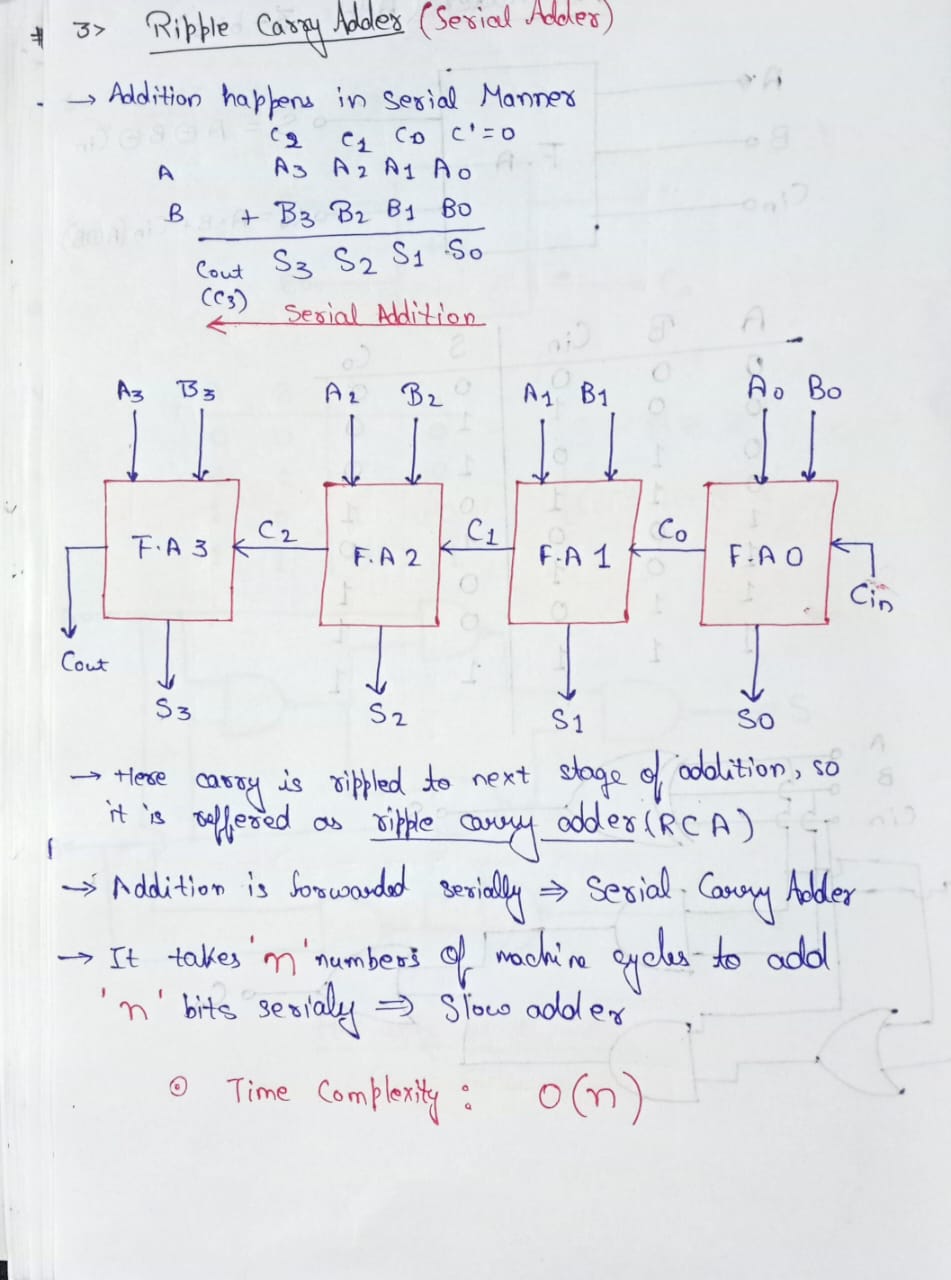 # 3> Ripple Carry Adder (Serial Adder)
→ Addition happens in Serial Manner
C2 C1 C0 C'=0
A A3 A2 A1 A0
B + B3 B2 B1 B0
Cout S3 S2 S1 S0
(C3)
← Serial Addition
A3 B3 A2 B2 A1 B1 A0 B0
F.A 3 C2 F.A 2 C1 F.A 1 C0 F.A 0
Cin
Cout
S3 S2 S1 S0
→ Here carry is rippled to next stage of addition, so
it is reffered as ripple carry adder (RCA)
→ Addition is forwarded serially ⇒ Serial Carry Adder
→ It takes 'n' numbers of machine cycles to add
'n' bits serialy ⇒ Slow adder
⊙ Time Complexity : O(n)